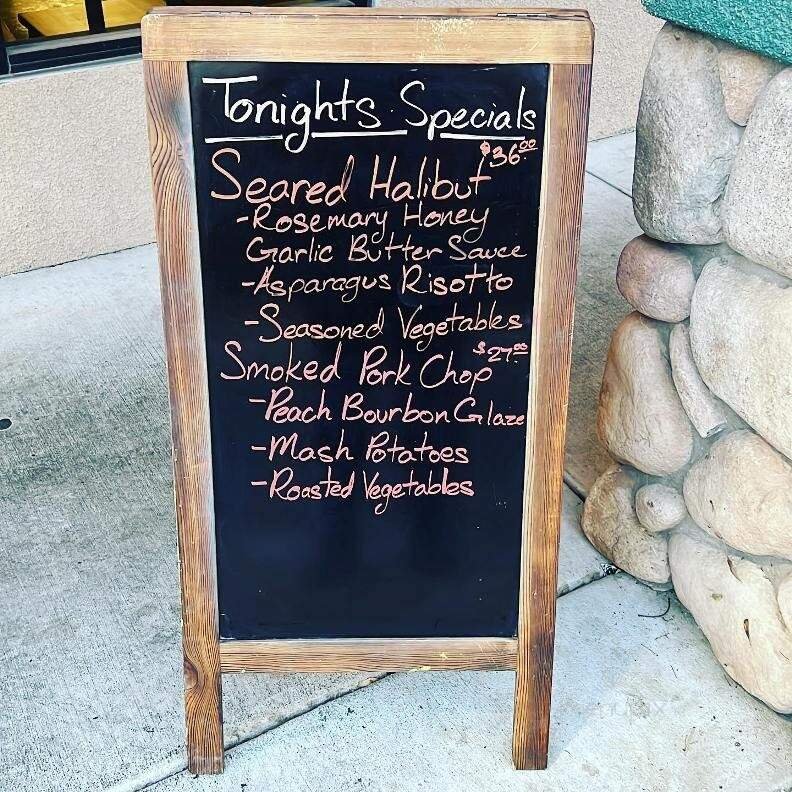 Tonights Specials
$36.00
Seared Halibut
-Rosemary Honey
Garlic Butter Sauce
-Asparagus Risotto
-Seasoned Vegetables
$27.00
Smoked Pork Chop
-Peach Bourbon Glaze
-Mash Potatoes
-Roasted Vegetables